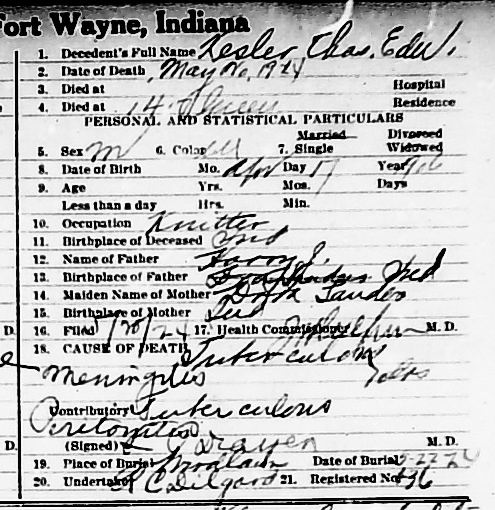 Fort Wayne, Indiana
1. Decedent's Full Name Kesler, Chas. Edw.
2. Date of Death May 1924
3. Died at Hospital
4. Died at Residence
PERSONAL AND STATISTICAL PARTICULARS
Married Divorced
5. Sex M 6. Color 7. Single Widowed
8. Date of Birth Mo. Apr Day 17 Year
9. Age Yrs. Mos. Days
Less than a day Hrs. Min.
10. Occupation Knitter
11. Birthplace of Deceased Ind
12. Name of Father Harry J.
13. Birthplace of Father Ind
14. Maiden Name of Mother Dora Sander
15. Birthplace of Mother
D. 16. Filed 17. Health Commissioner M. D.
18. CAUSE OF DEATH Tuberculous
Meningitis
Contributory Tuberculous
Peritonitis
D. (Signed) M. D.
19. Place of Burial Date of Burial 5-22-24
20. Undertaker C. Dilgard 21. Registered No.